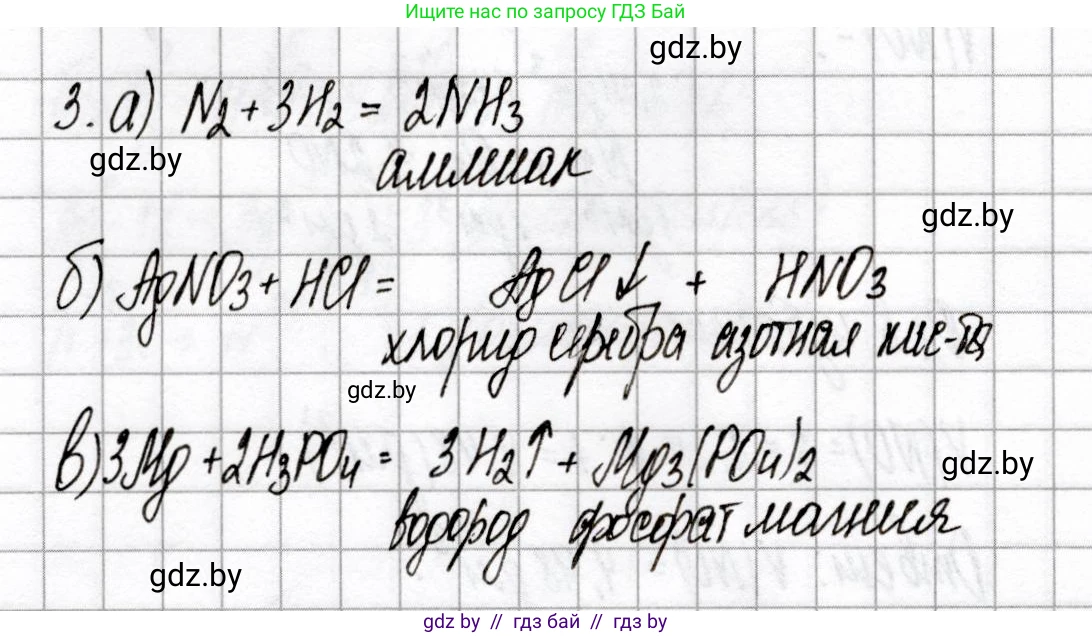 Ищите нас по запросу ГДЗ Бай
gdz.by
3. а) N₂ + 3H₂ = 2NH₃
gdz.by
аммиак
gdz.by
б) AgNO₃ + HCl = AgCl↓ + HNO₃
хлорид серебра азотная кис-та
gdz.by
в) 3Mg + 2H₃PO₄ = 3H₂↑ + Mg₃(PO₄)₂
gdz.by
водород фосфат магния
gdz.by
gdz.by // гдз бай // gdz.by